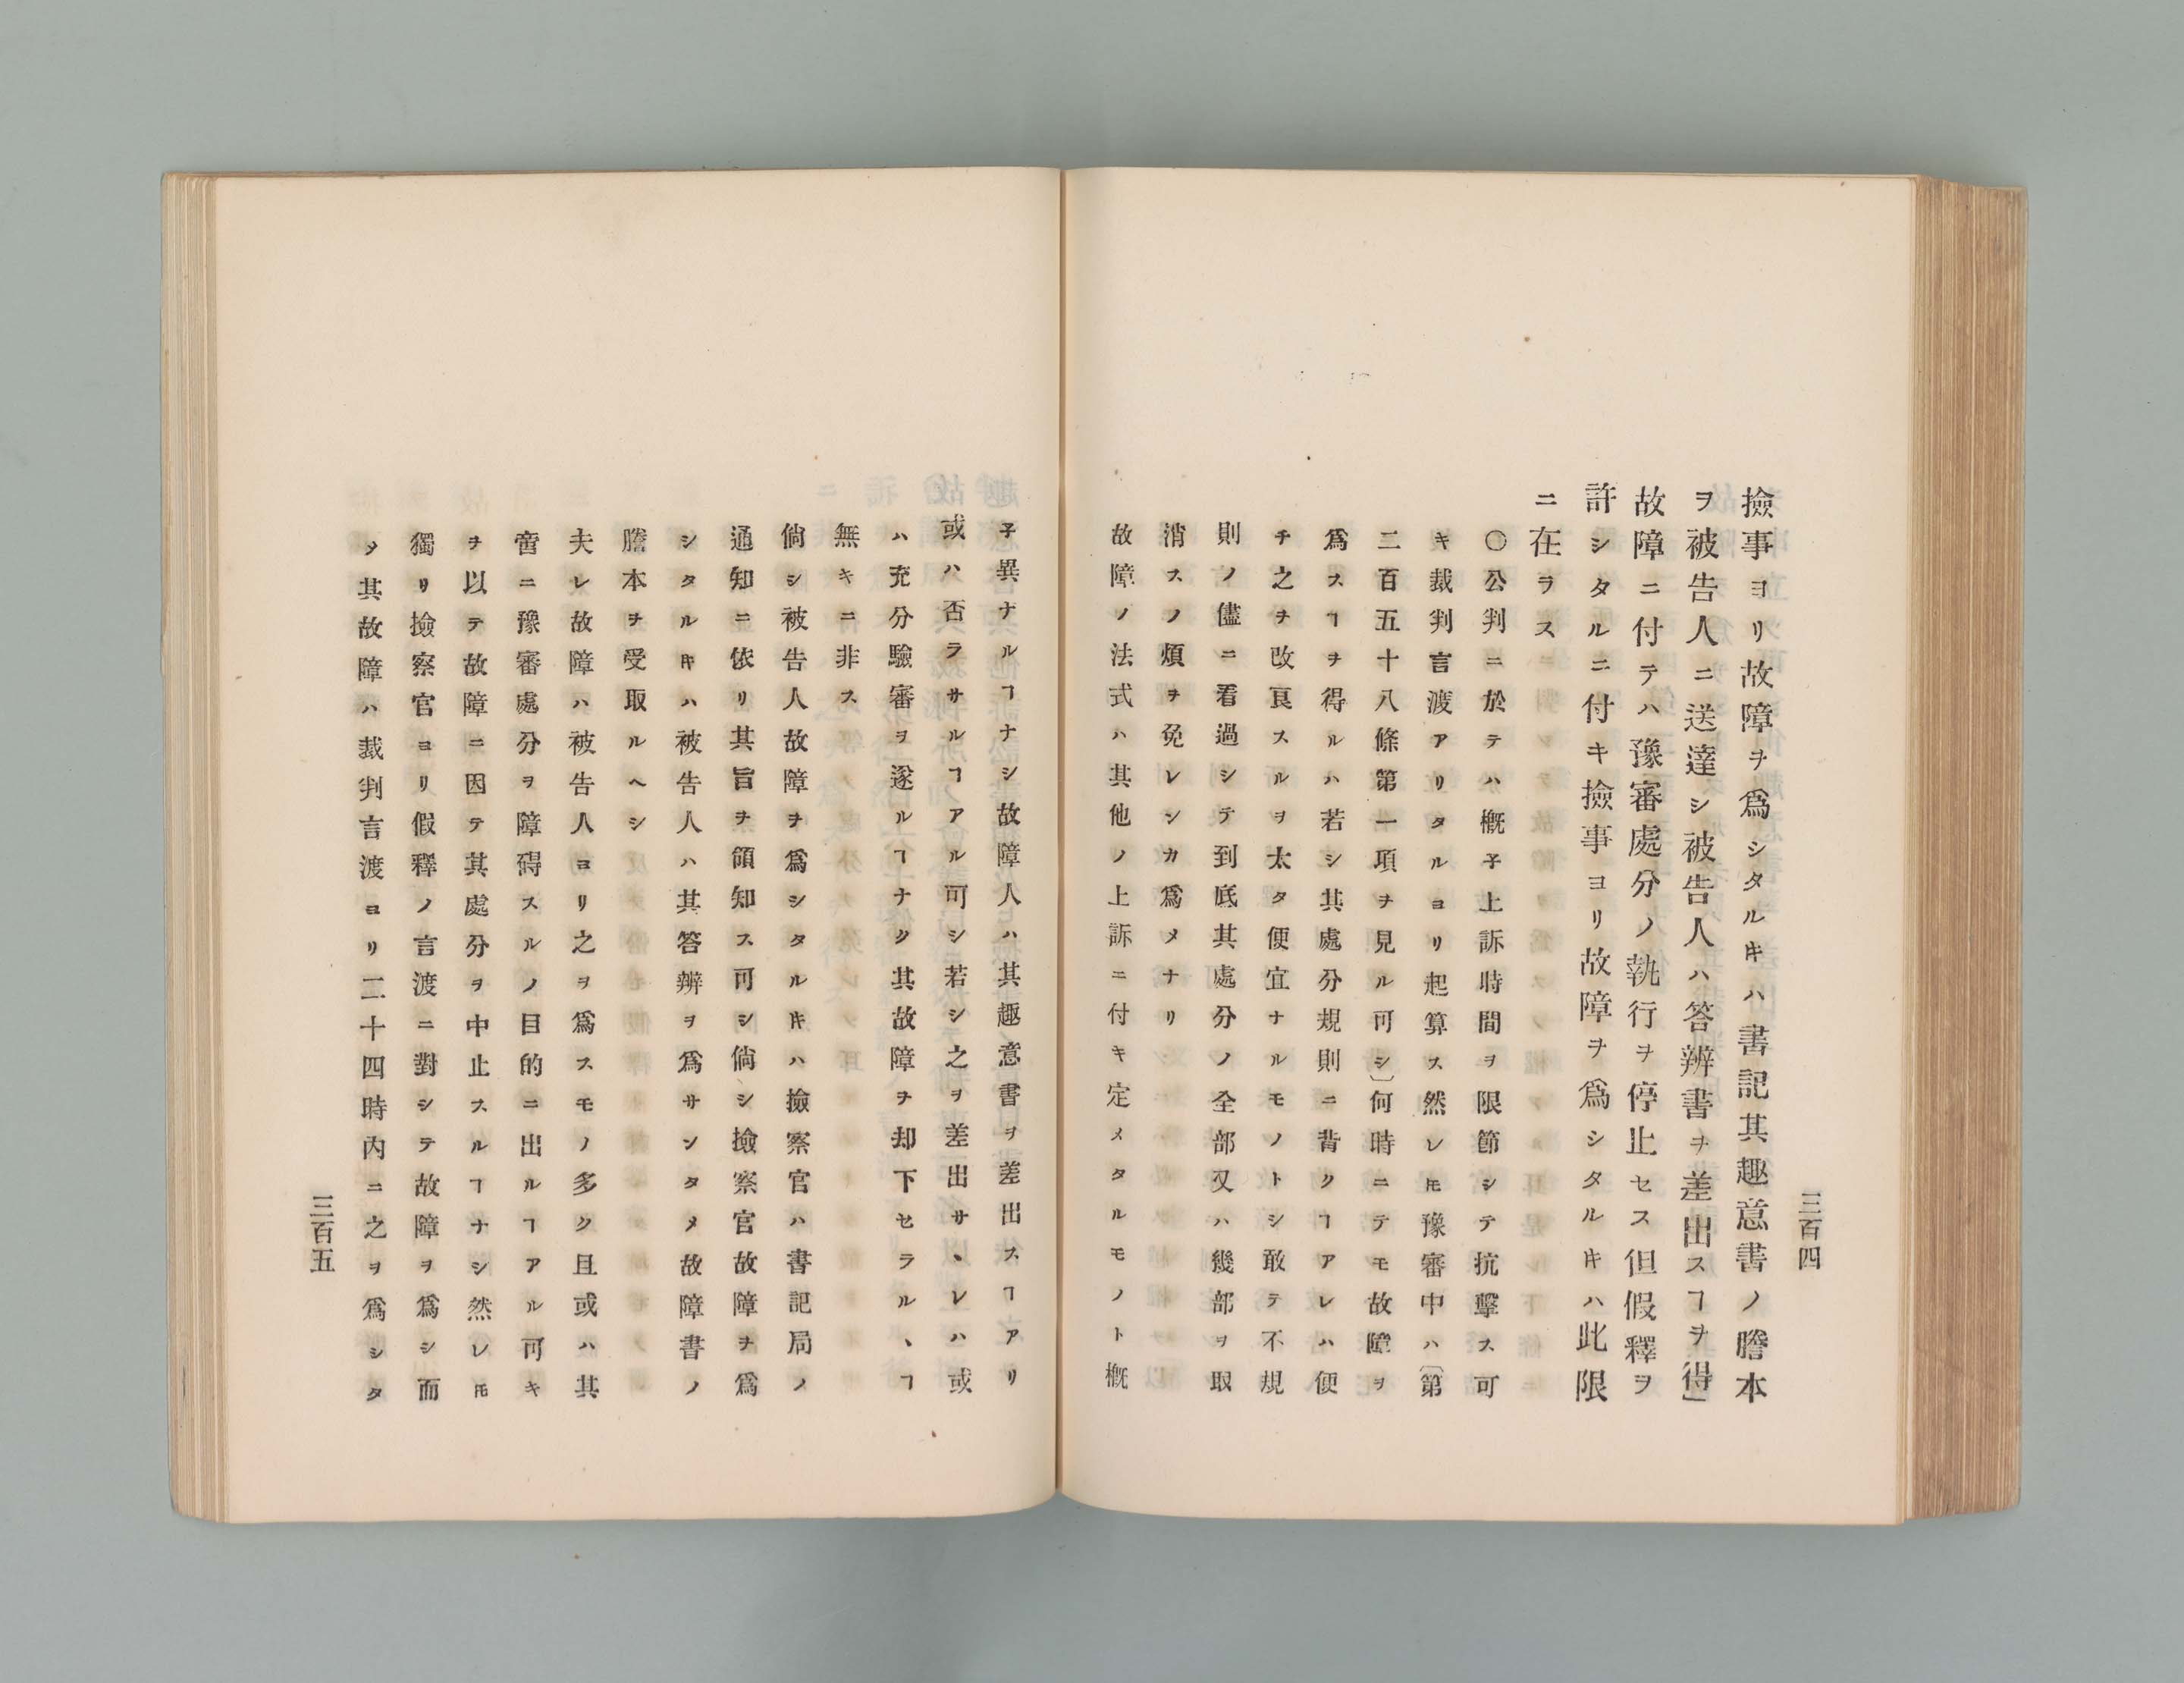 三百四
撿事ヨリ故障ヲ爲シタルキハ書記其趣意書ノ謄本
ヲ被告人ニ送達シ被告人ハ答辨書ヲ差出スヿヲ得」
故障ニ付テハ豫審處分ノ執行ヲ停止セス但假釋ヲ
許シタルニ付キ撿事ヨリ故障ヲ爲シタルキハ此限
ニ在ラス
〇公判ニ於テハ槪子上訴時間ヲ限節シテ抗擊ス可
キ裁判言渡アリタルヨリ起算ス然レ𪜈豫審中ハ〔第
二百五十八條第一項ヲ見ル可シ〕何時ニテモ故障ヲ
爲スヿヲ得ルハ若シ其處分規則ニ背クヿアレハ便
チ之ヲ改良スルヲ太タ便宜ナルモノトシ敢テ不規
則ノ儘ニ看過シテ到底其處分ノ全部又ハ幾部ヲ取
消スノ煩ヲ免レンカ爲メナリ
故障ノ法式ハ其他ノ上訴ニ付キ定メタルモノト槪
子異ナルヿナシ故障人ハ其趣意書ヲ差出スヿアリ
或ハ否ラサルヿアル可シ若シ之ヲ差出サヽレハ或
ハ充分驗審ヲ遂ルヿナク其故障ヲ却下セラルヽヿ
無キニ非ス
倘シ被告人故障ヲ爲シタルキハ撿察官ハ書記局ノ
通知ニ依リ其旨ヲ領知ス可シ倘シ撿察官故障ヲ爲
シタルキハ被告人ハ其答辨ヲ爲サンタメ故障書ノ
謄本ヲ受取ルヘシ
夫レ故障ハ被告人ヨリ之ヲ爲スモノ多ク且或ハ其
啻ニ豫審處分ヲ障碍スルノ目的ニ出ルヿアル可キ
ヲ以テ故障ニ因テ其處分ヲ中止スルヿナシ然レ𪜈
獨リ撿察官ヨリ假釋ノ言渡ニ對シテ故障ヲ爲シ而
タ其故障ハ裁判言渡ヨリ二十四時內ニ之ヲ爲シタ
三百五